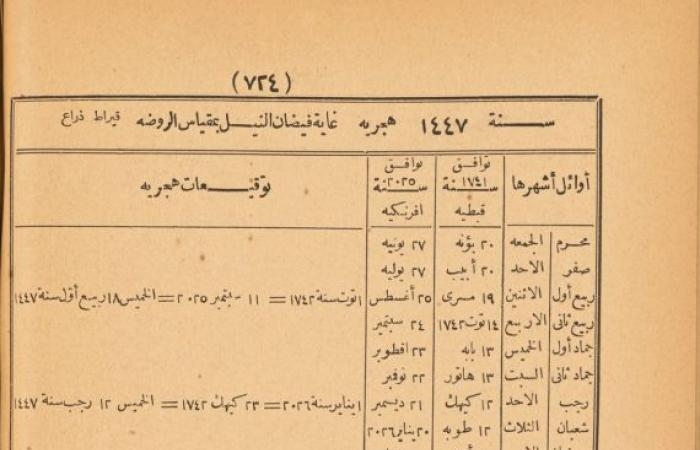 (٧٢٤)
سنة ١٤٤٧ هجريه غاية فيضان النيل بمقياس الروضه قيراط ذراع
أوائل أشهرها توافق سنة ١٧٤١ قبطيه توافق سنة ٢٠٢٥ افرنكيه توقيعات هجريه
محرم الجمعه ٢٠ بؤنه ٢٧ يونيه
صفر الاحد ٢٠ أبيب ٢٧ يوليه
ربيع أول الاثنين ١٩ مسرى ٢٥ أغسطس ١ توت سنة ١٧٤٢ = ١١ سبتمبر ٢٠٢٥ = الخميس ١٨ ربيع أول سنة ١٤٤٧
ربيع ثانى الاربع ١٤ توت ١٧٤٢ ٢٤ سبتمبر
جماد أول الخميس ١٣ بابه ٢٣ اقطوبر
جماد ثانى السبت ١٣ هاتور ٢٢ نوفمبر
رجب الاحد ١٢ كيهك ٢١ ديسمبر ١ يناير سنة ٢٠٢٦ = ٢٣ كيهك ١٧٤٢ = الخميس ١٢ رجب سنة ١٤٤٧
شعبان الثلاث ١٢ طوبه ٢٠ يناير ٢٠٢٦